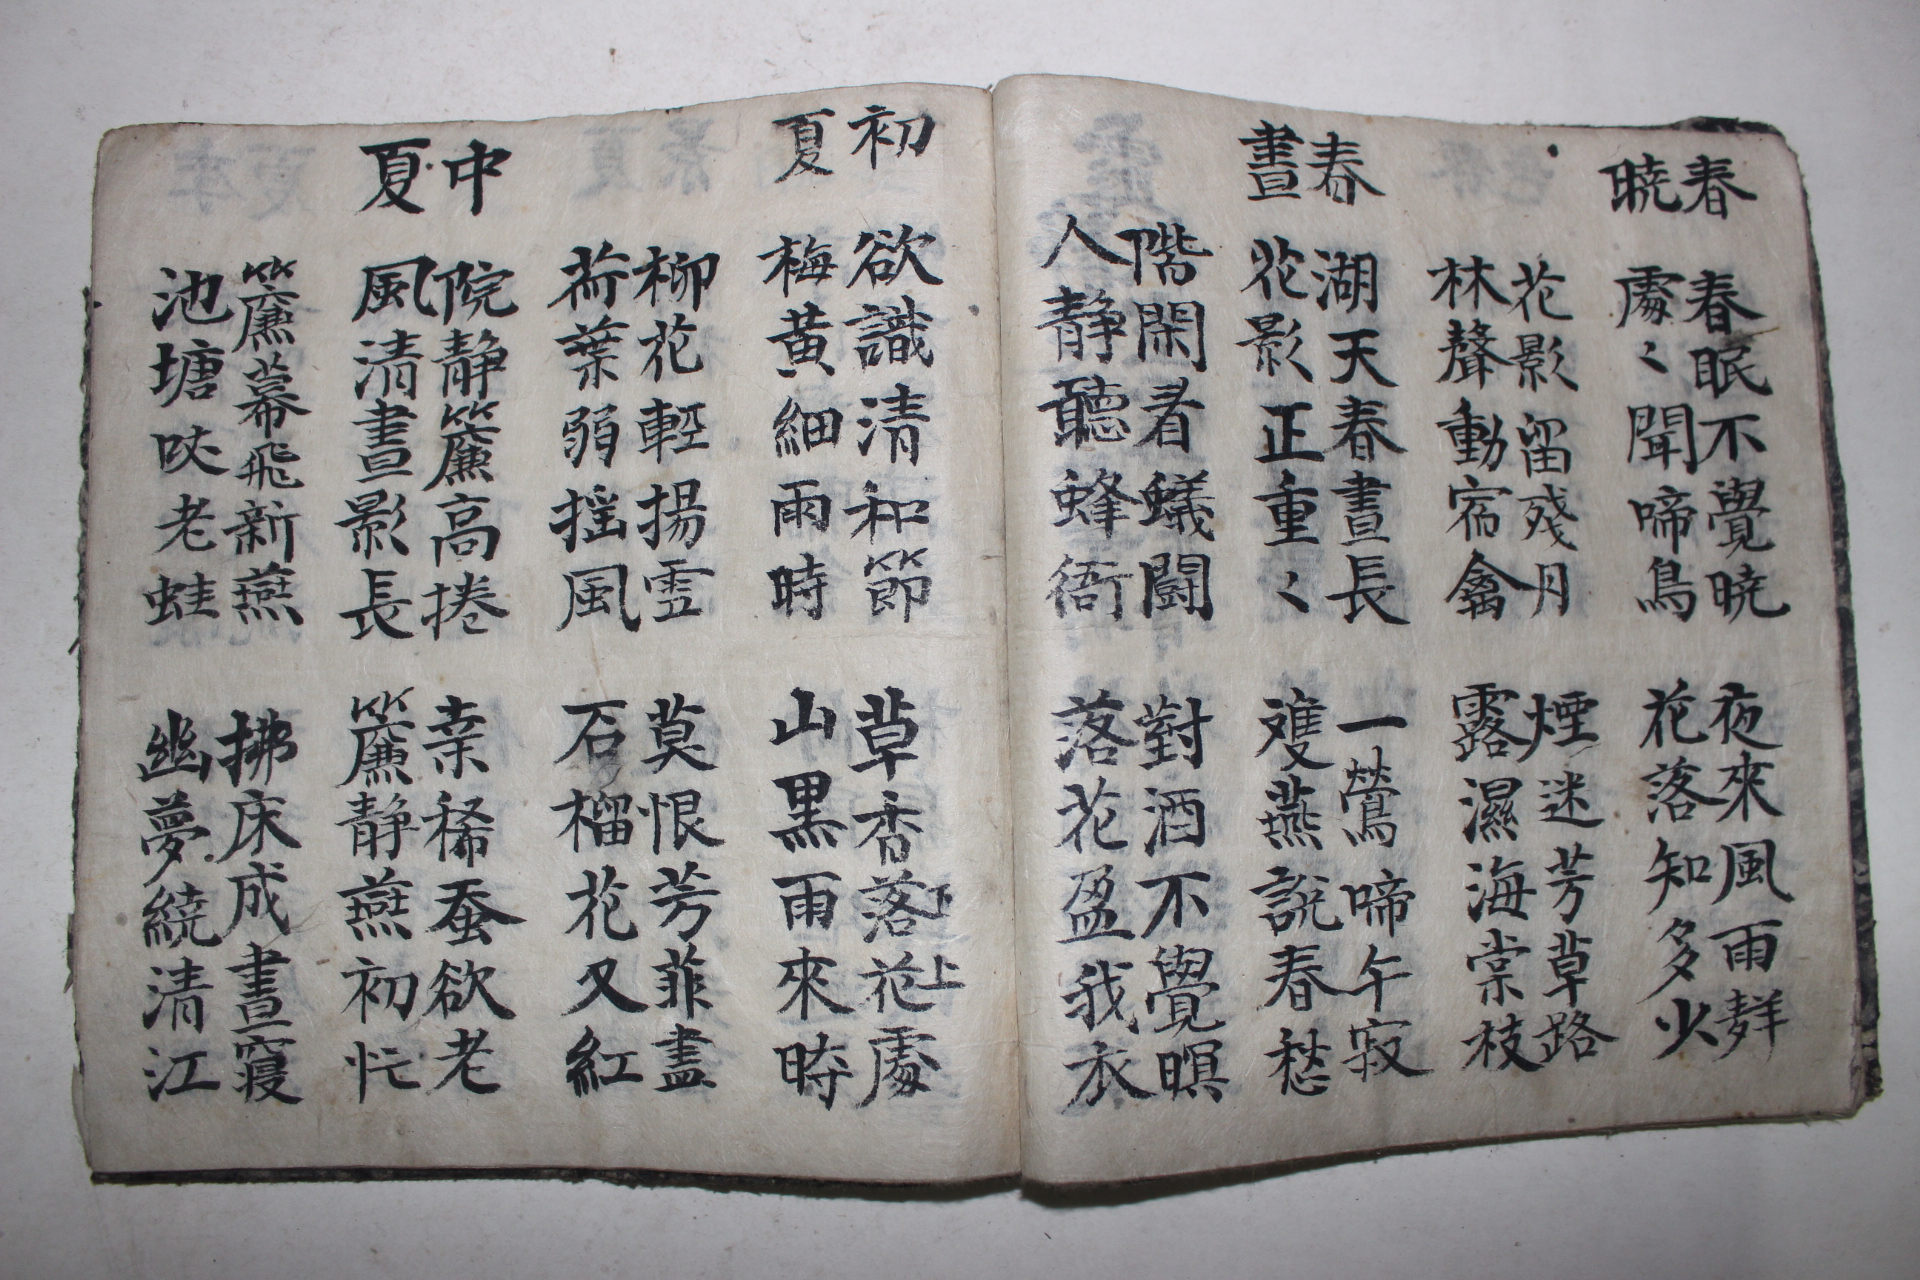 春暁
春眠不覺暁
處〻聞啼鳥
夜來風雨聲
花落知多少
花影留残月
林聲動宿禽
煙迷芳草路
露濕海棠枝
春晝
湖天春晝長
花影正重〻
一鶯啼午寂
雙燕說春愁
階閑看蟻鬪
人静聽蜂衙
對酒不覺暝
落花盈我衣
初夏
欲識清和節
梅黄細雨時
草香落花處
下
上
山黑雨來時
柳花軽揚雪
荷葉弱揺風
莫恨芳菲盡
石榴花又紅
中夏
院静簾高捲
風清晝影長
桒稀蚕欲老
簾静燕初忙
簾幕飛新燕
池塘吠老蛙
拂床成晝寢
幽夢繞清江